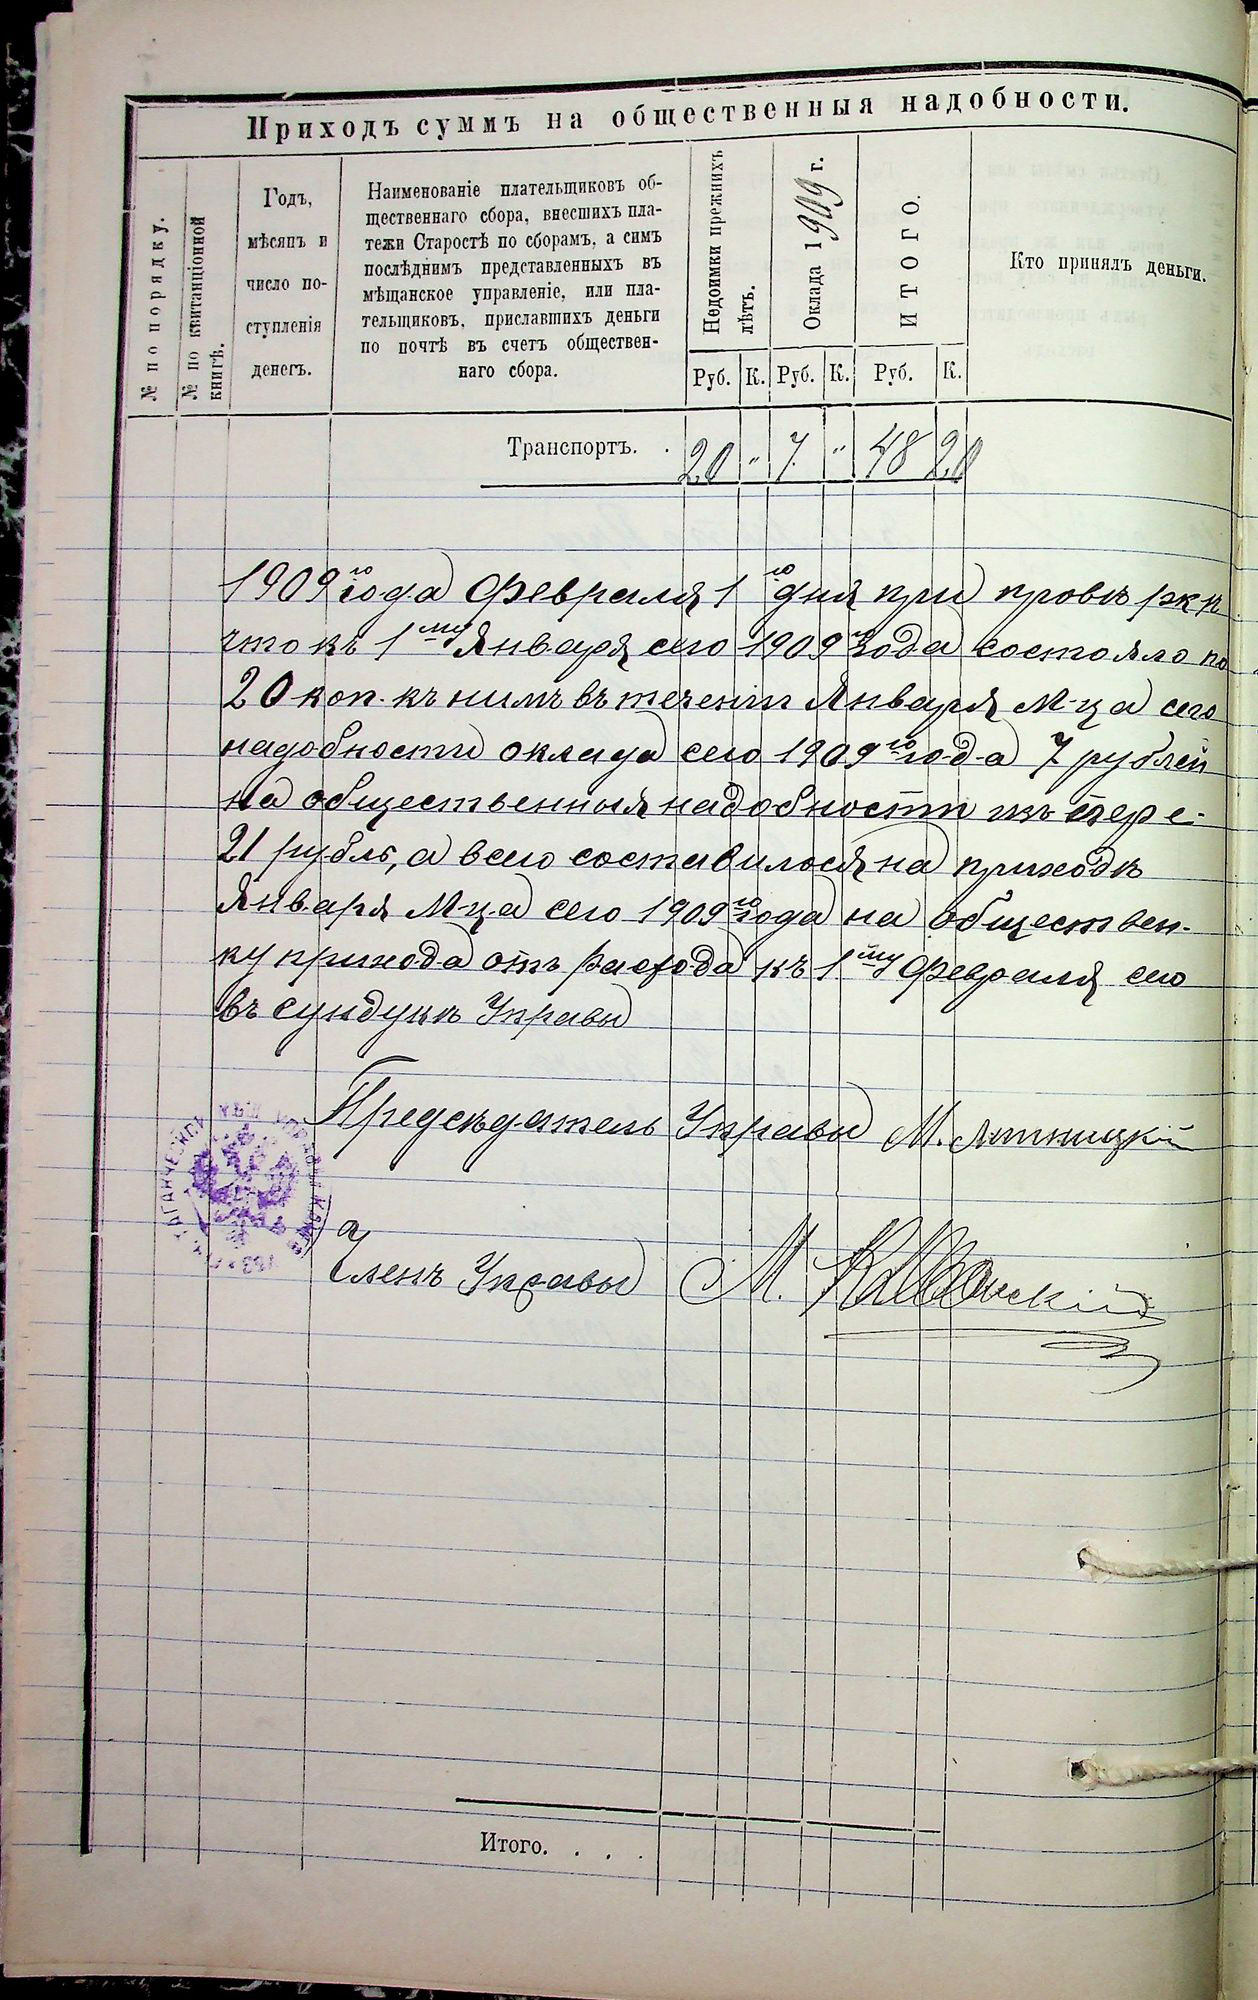 Приходъ суммъ на общественныя надобности.
№ по порядку.
№ по квитанціонной
книгѣ.
Годъ,
мѣсяцъ и
число по-
ступленія
денегъ.
Наименованіе плательщиковъ об-
щественнаго сбора, внесшихъ пла-
тежи Старостѣ по сборамъ, а симъ
послѣднимъ представленныхъ въ
мѣщанское управленіе, или пла-
тельщиковъ, приславшихъ деньги
по почтѣ въ счетъ обществен-
наго сбора.
Недоимки прежнихъ
лѣтъ.
Оклада 1909 г.
ИТОГО.
Кто принялъ деньги.
Руб. К. Руб. К. Руб. К.
Транспортъ. . 20 " 7. " 48 20
1909 го года Февраля 1 го дня при провѣркѣ
что къ 1 му Января сего 1909 го года состояло по
20 коп. къ нимъ въ теченіи Января М-ца сего
надобности оклада сего 1909 го года 7 рублей
на общественныя надобности изъ пере-
21 рубль, а всего составилося на приходѣ
Января М-ца сего 1909 го года на обществен-
ку прихода отъ расхода къ 1 му Февраля сего
въ сундукѣ Управы
Предсѣдатель Управы М.
Членъ Управы М.
Итого. . . .